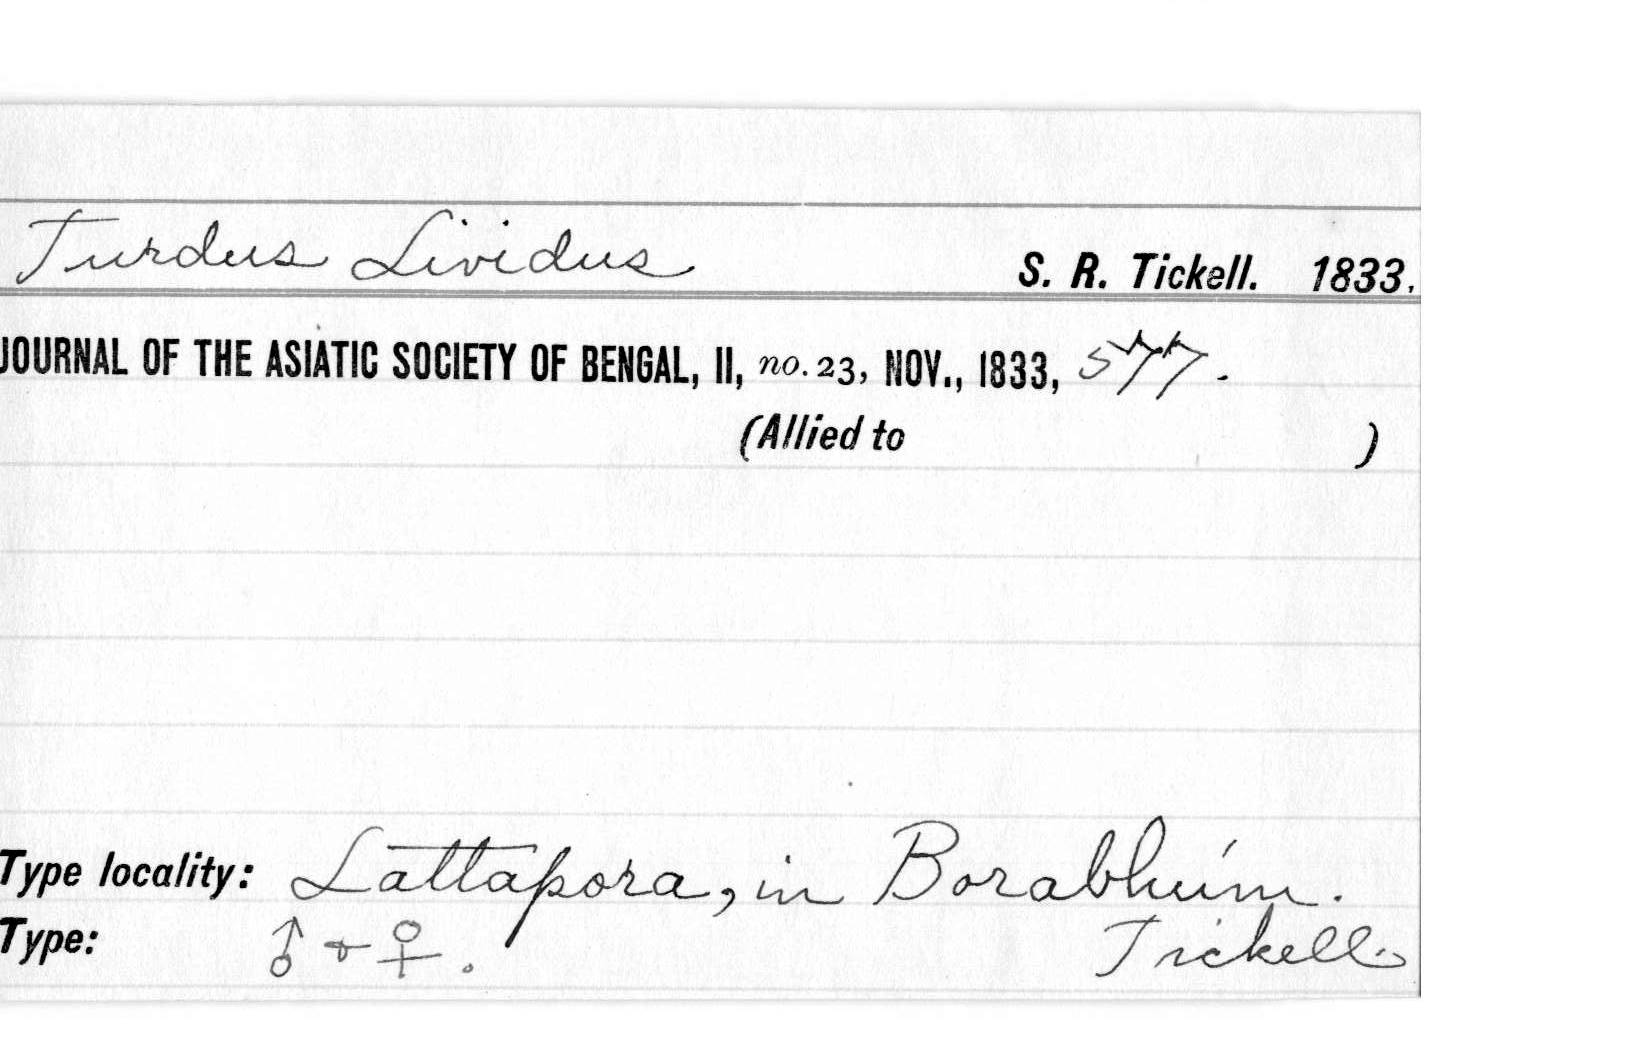 Turdus Lividus S. R. Tickell. 1833.
JOURNAL OF THE ASIATIC SOCIETY OF BENGAL, II, no. 23, NOV., 1833, 577.
(Allied to )
Type locality: Lattapora, in Borabhúm.
Type: ♂ + ♀. Tickell.